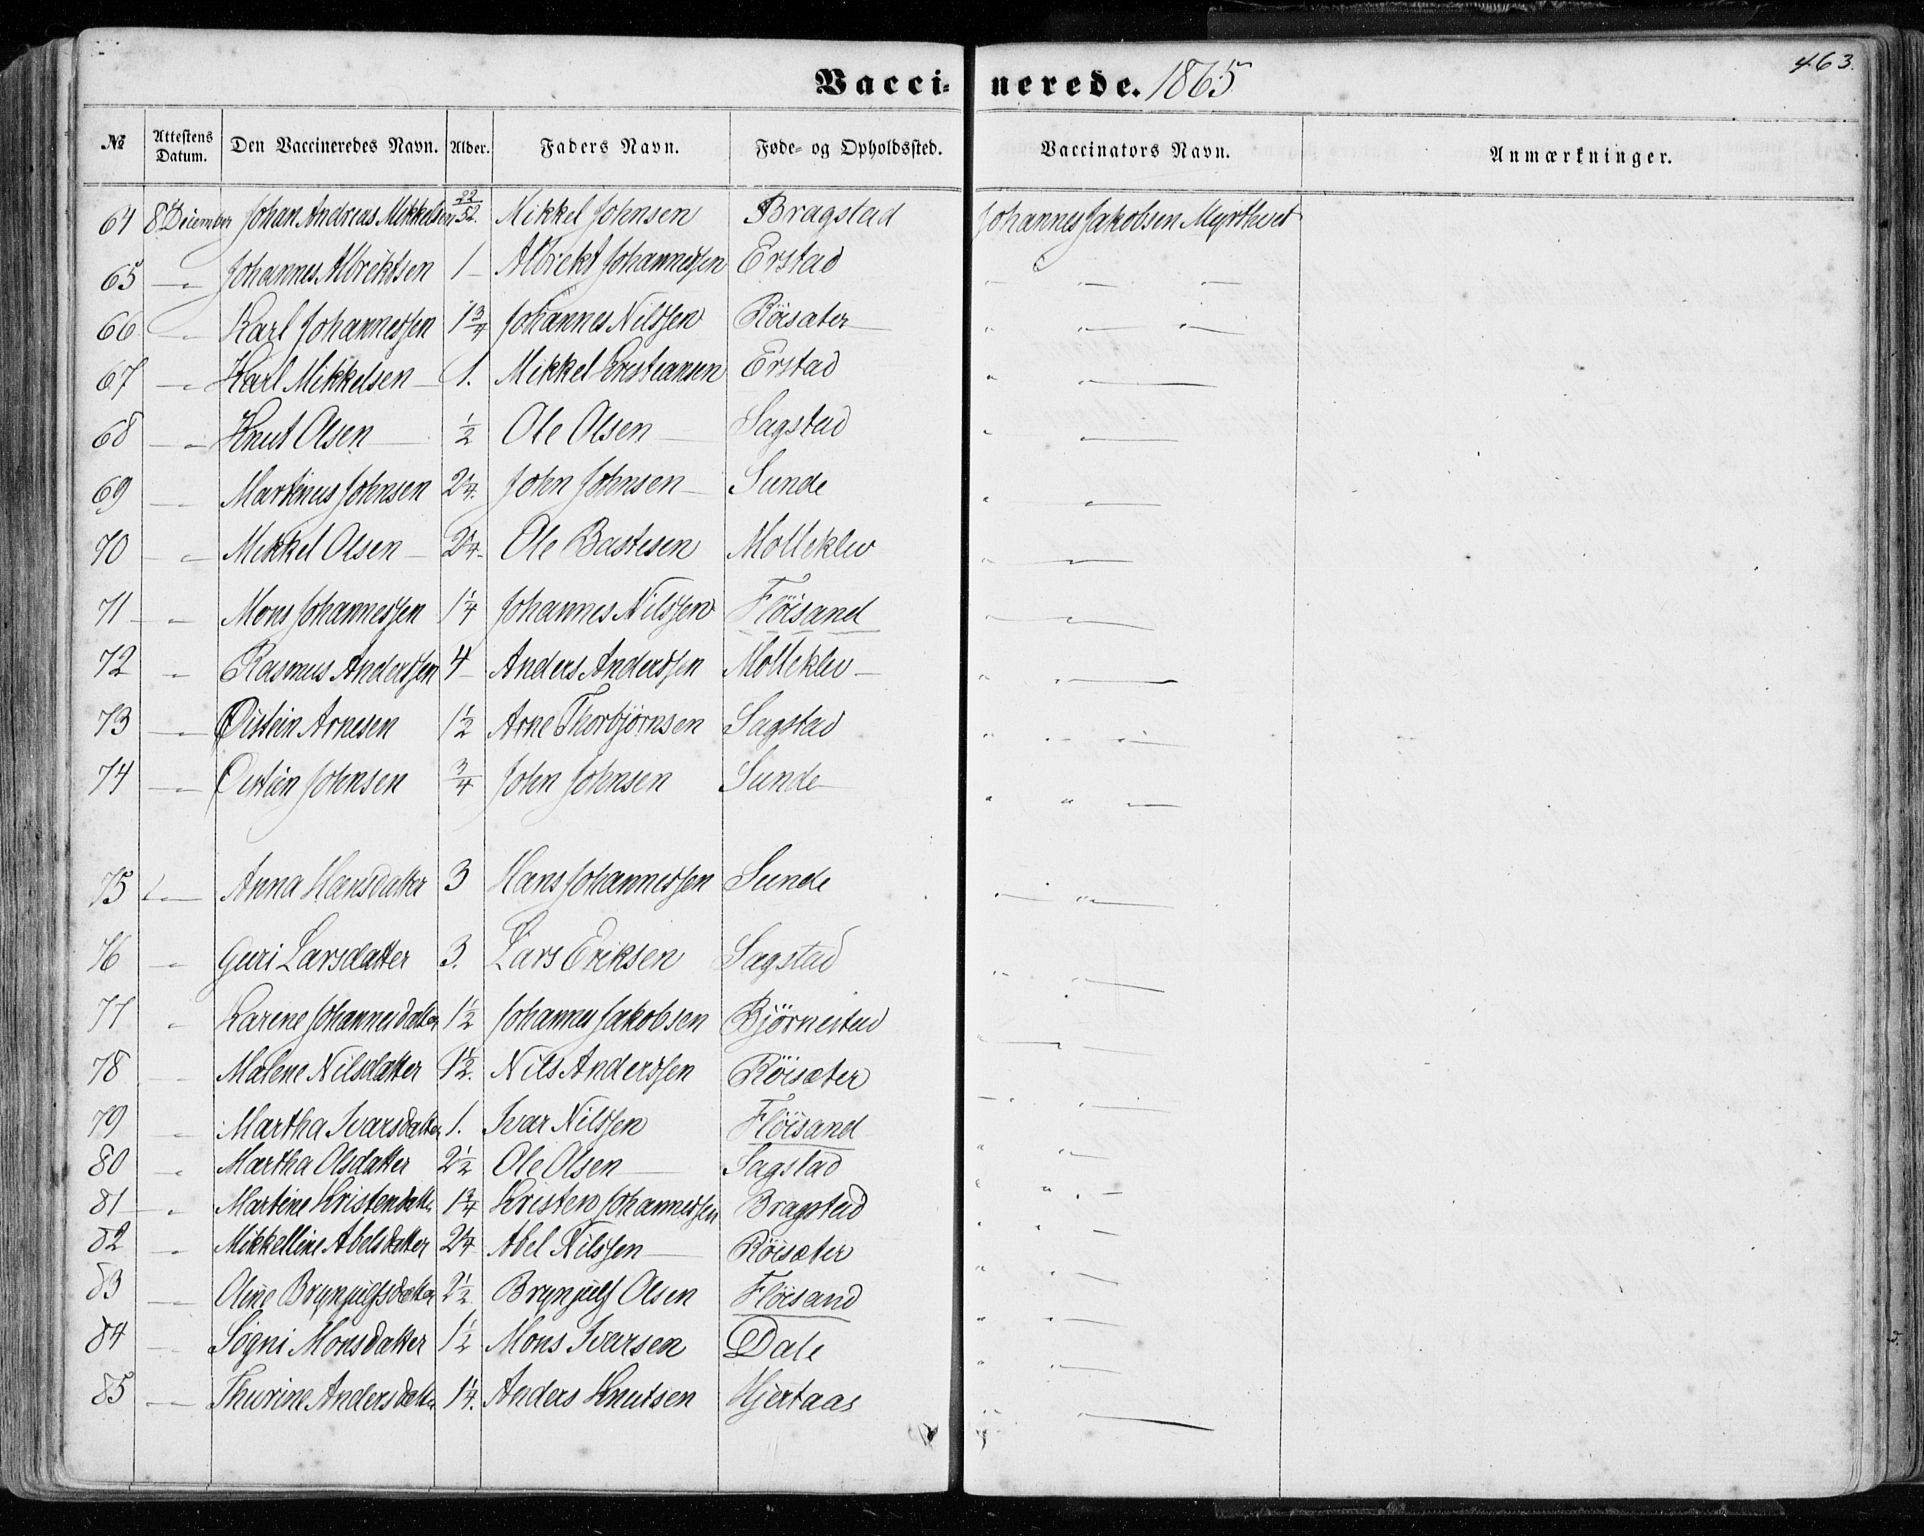 463.
Vaccinerede. 1865
№ Attestens Datum. Den Vaccineredes Navn. Alder. Faders Navn. Føde- og Opholdssted. Vaccinators Navn. Anmærkninger.
64 8 December Johan Andreas Mikkelsen 22/52. Mikkel Johnsen Bragstad Johannes Jakobsen Myrtveit
65 — " Johannes Albrektsen 1 — Albrekt Johannessen Erstad — " — " —
66 " Karl Johannessen 1 3/4 Johannes Nilssen Röisæter — " " — " —
67 — " Karl Mikkelsen — 1. Mikkel Kristiansen Erstad " " —
68 — " Knut Olsen — 1/2 Ole Olsen — Sagstad " " —
69 — " Martinus Johnsen 2 1/4. John Johnsen — Sunde " " —
70 " Mikkel Olsen — 2 1/4. Ole Bastesen Molleklev " " —
71 — " Mons Johannessen 1 1/4 Johannes Nilssen Flöisand " — " —
72 " Rasmus Anderssen 4 — Anders Anderssen Molleklev — " " —
73 — " Öistein Arnesen 1 1/2 Arne Thorbjørnsen Sagstad " " " —
74 — " Öistein Johnsen 3/4 John Johnsen Sunde — " " —
75 — " Anna Hansdatter 3 Hans Johannessen Sunde " — " —
76 — " Guri Larsdatter 3. Lars Eriksen Sagstad " " —
77 " Karene Johannesdatter 1 1/2 Johannes Jakobsen Bjørnestad " — " —
78 — Malene Nilsdatter 1 1/2. Nils Anderssen Röisæter — " " —
79 — " Martha Ivarsdatter 1. Ivar Nilssen Flöisand " " —
80 " Martha Olsdatter 2 1/2 Ole Olsen — Sagstad " " " —
81 — " Martine Kristensdatter 1 3/4 Kristen Johannessen Bragstad " " —
82 — " Mikkelline Abelsdatter 2 1/4 Abel Nilssen — Röisæter " " —
83 — " Oline Brynjulfsdatter 2 1/2 Brynjulf Olsen Flöisand " " —
84 — Søgni Monsdatter 1 1/2 Mons Ivarsen Dale " " —
85 — " Thurine Andersdatter 1 1/4. Anders Knutsen Hjertaas " " —